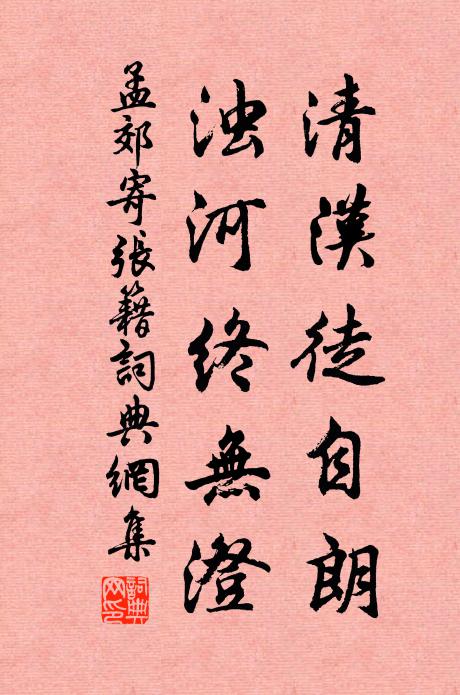 清漢徒自朗
浊河終無澄
孟郊寄張籍詞典網集
詞典網印